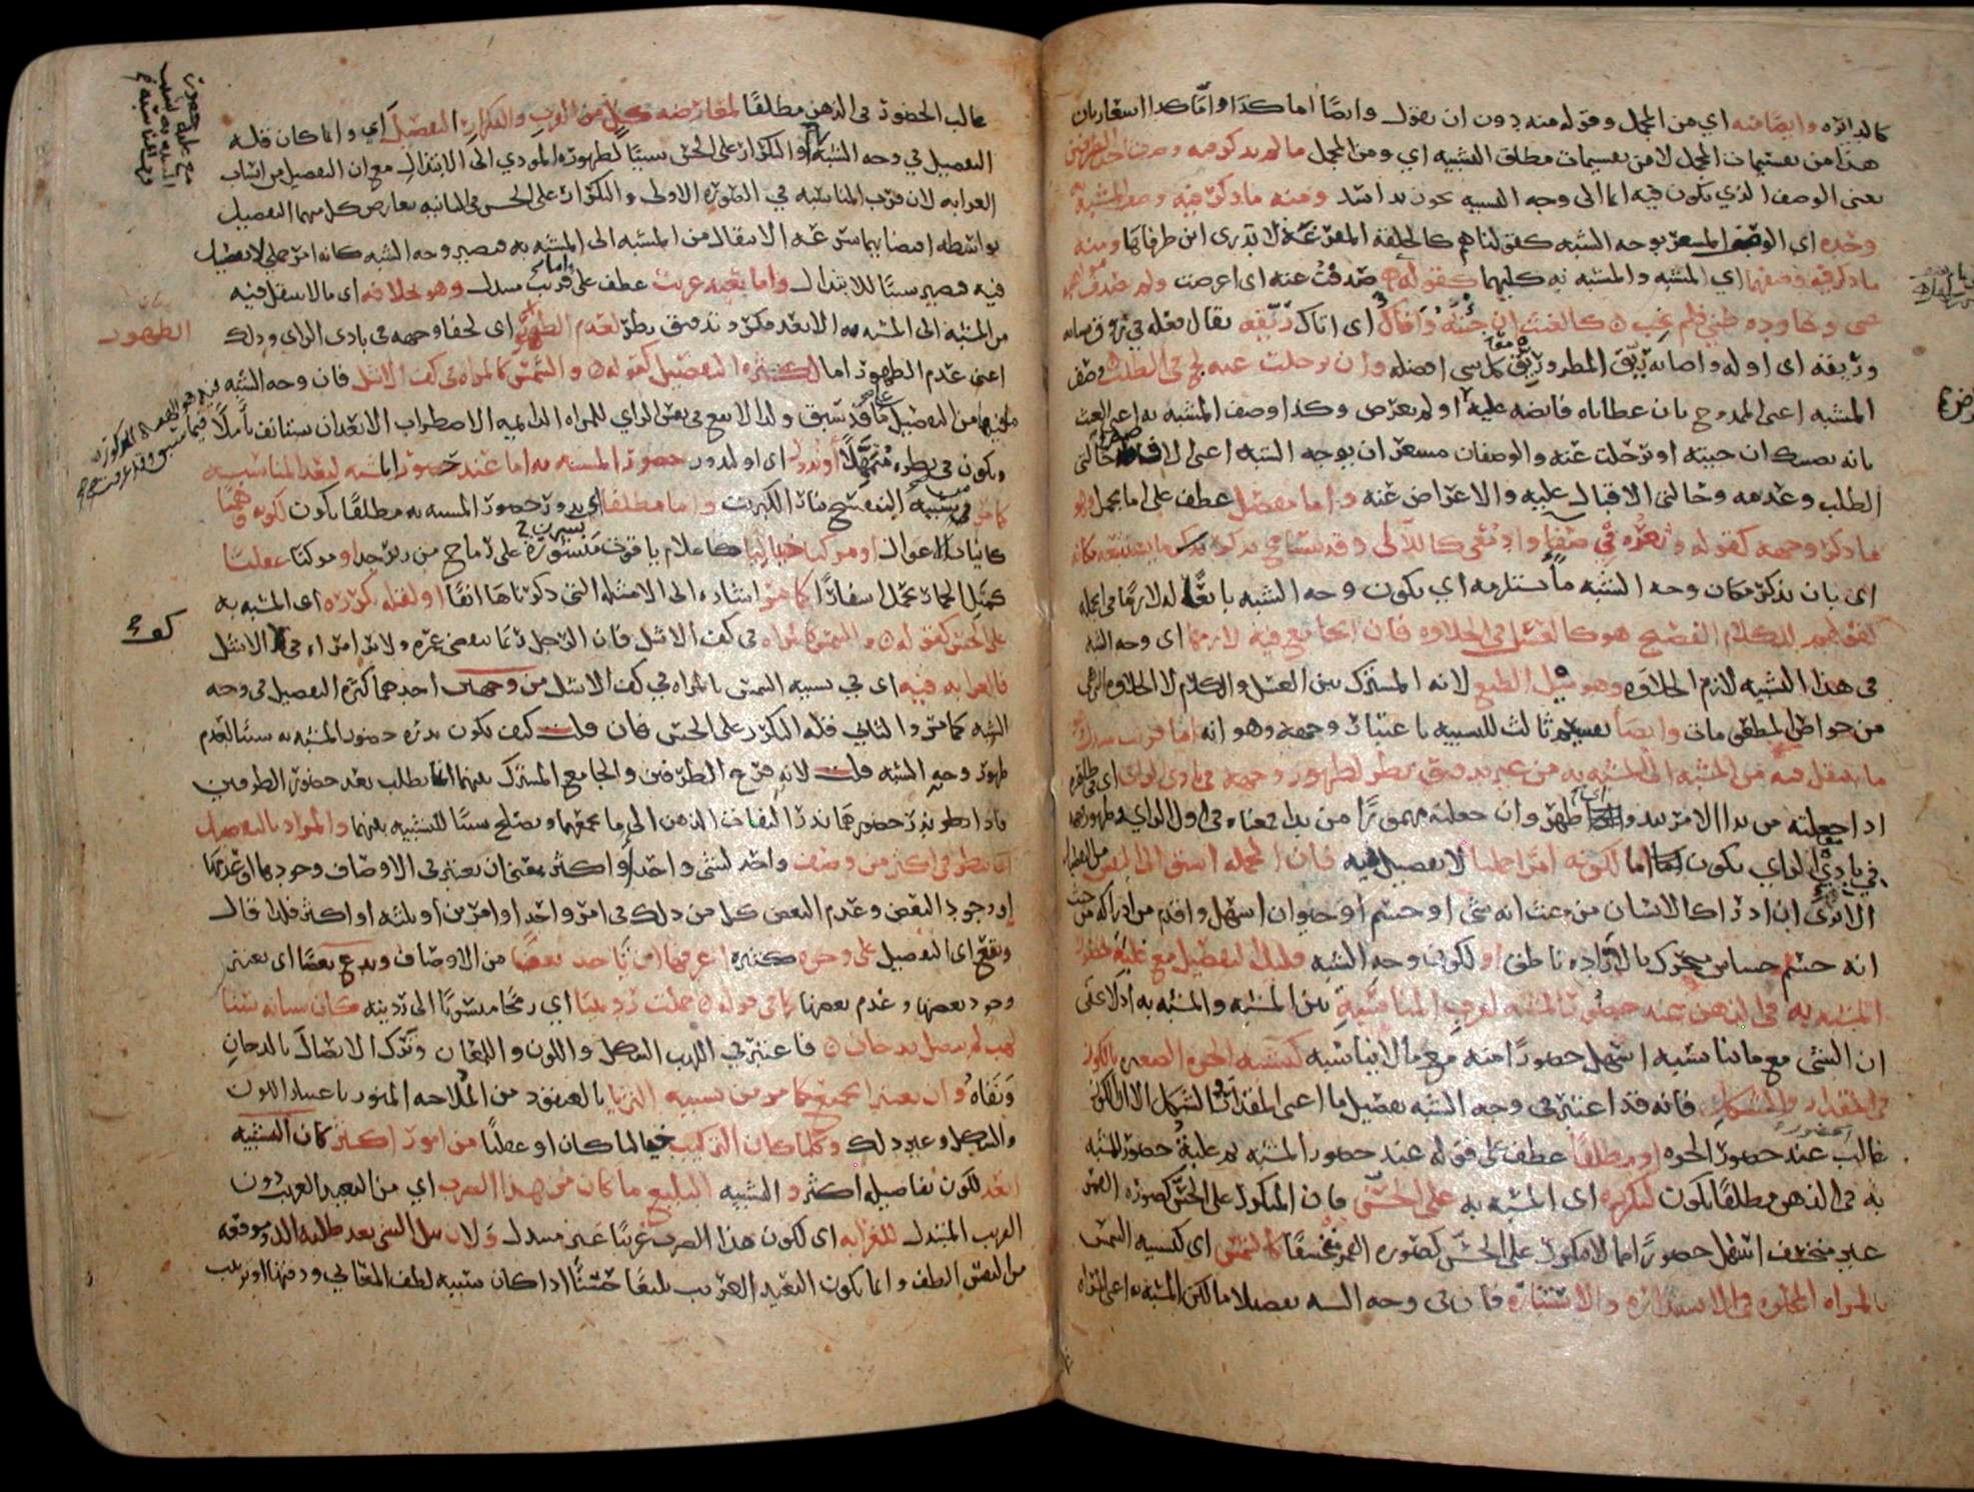 كالدائره وايضا منه اي من المجمل وقوله منه دون ان يقول وايضا اما كذا واما كذا اشعار بان
هذا من تقسيمات المجمل لا من تقسيمات مطلق التشبيه اي ومن المجمل ما لم يذكر فيه وصف احد الطرفين
يعنى الوصف الذي يكون فيه ايما الى وجه التشبيه نحو زيد اسد ومنه ما ذكر فيه وصف المشبه به
وحده اي الوصف المشعر بوجه الشبه كقولنا هم كالحلقة المفرغة لا يدرى اين طرفاها ومنه
ما ذكر فيه وصفهما اي المشبه والمشبه به كليهما كقوله صدفت عنه اى اعرضت ولم تصدف مواهبه
عنى وعاوده ظني فلم يخب كالغيث ان جئته وافاك اى اتاك ريقه يقال فعله في روق شبابه
وريقه اى اوله واصابه ريق المطر وريق كل شى افضله وان ترحلت عنه لج في الطلب وصف
المشبه اعنى الممدوح بان عطاياه فايضه عليه اولم يعرض وكذا وصف المشبه به اعنى الغيث
بانه يصيبك ان جئته او ترحلت عنه والوصفان مشعران بوجه الشبه اعنى الافاضه حالتى
الطلب وعدمه وحالتى الاقبال عليه والاعراض عنه واما مفصل عطف على اما مجمل وهو
ما ذكر وجهه كقوله وثغره في صفاء وادمعى كاللآلى وقد يتسامح بذكر ما يستتبعه مكانه
اى بان يذكر مكان وجه الشبه ما يستلزمه اي يكون وجه الشبه تابعا له لازما في الجمله
كقولهم للكلام الفصيح هو كالعسل في الحلاوه فان الجامع فيه لازمها اى وجه الشبه
فى هذا التشبيه لازم الحلاوه وهو ميل الطبع لانه المشترك بين العسل والكلام لا الحلاوه التى هى
من خواص المطعومات وايضا تقسيم ثالث للتشبيه باعتبار وجهه وهو انه اما قريب مبتذل
ما ينتقل فيه من المشبه الى المشبه به من غير تدقيق نظر لظهور وجهه في بادى الراى اى في ظاهره
اذا جعلته من بدا الامر يبدو اى ظهر وان جعلته مهموزا من بدا فمعناه في اول الراي وظهور وجهه
في بادي الراي يكون اما لكونه امرا جمليا لا تفصيل فيه فان الجمله اسبق الى النفس من التفصيل
الا ترى ان ادراك الانسان من حيث انه شى او جسم او حيوان اسهل واقدم من ادراكه من حيث
انه جسم حساس متحرك بالاراده ناطق او لكون وجه الشبه قليل التفصيل مع غلبة حضور
المشبه به في الذهن عند حضور المشبه لقرب المناسبة بين المشبه والمشبه به اذ لا يخفى
ان الشى مع ما يناسبه اسهل حضورا منه مع ما لا يناسبه كتشبيه الجره الصغيره بالكوز
في المقدار والشكل فانه قد اعتبر في وجه الشبه تفصيل ما اعنى المقدار والشكل الا ان الكوز
غالب عند حضور الجره او مطلقا عطف على قوله عند حضور المشبه ثم غلبة حضور المشبه
به في الذهن مطلقا يكون لتكرره اى المشبه به على الحس فان المتكرر على الحس كصورة القمر
غير منخسف اسهل حضورا مما لا يتكرر على الحس كصوره القمر منخسفا كالشمس اى كتشبيه الشمس
بالمراه المجلوه في الاستداره والاستناره فان في وجه الشبه تفصيلا ما لكن المشبه به اعنى المراه
غالب الحضور في الذهن مطلقا لمعارضه كل من القرب والتكرار التفصيل اى وانما كان قله
التفصيل في وجه الشبه والتكرار على الحس سببا لظهوره المودي الى الابتذال مع ان التفصيل من اسباب
الغرابه لان قرب المناسبه في الصوره الاولى والتكرار على الحس في الثانيه يعارض كل منهما التفصيل
بواسطه اقتضايهما سرعه الانتقال من المشبه الى المشبه به فيصير وجه الشبه كانه امر جملي لا تفصيل
فيه فيصير سببا للابتذال واما بعيد غريب عطف على اما قريب مبتذل وهو بخلافه اى ما لا ينتقل فيه
من المشبه الى المشبه به الا بعد فكر وتدقيق نظر لعدم الظهور اى لخفا وجهه في بادى الراي وذلك
اعنى عدم الظهور اما لكثره التفصيل كقوله والشمس كالمراه في كف الاشل فان وجه الشبه
فيها من التفصيل ما قد سبق ولذا لا يقع في نفس الراي للمراه الدايمه الاضطراب الا بعد ان يستانف تاملا
ويكون في نظره متمهلا او ندور اى او لندور حضور المشبه به اما عند حضور المشبه لبعد المناسبه
كما مر في تشبيه البنفسج بنار الكبريت واما مطلقا اى ندور حضور المشبه به مطلقا يكون لكونه وهميا
كانياب الاغوال او مركبا خياليا كاعلام ياقوت نشرن على رماح من زبرجد او مركبا عقليا
كمثل الحمار يحمل اسفارا كما مر اشاره الى الامثله التى ذكرناها انفا او لقله تكرره اى المشبه به
على الحس كقوله والشمس كالمراه في كف الاشل فان الرجل ربما ينقضى عمره ولا يرى مراه في كف الاشل
فالغرابه فيه اى في تشبيه الشمس بالمراه في كف الاشل من وجهين احدهما كثره التفصيل في وجه
الشبه كما مر والثاني قله التكرر على الحس فان قلت كيف يكون ندره حضور المشبه به سببا لعدم
ظهور وجه الشبه قلت لانه فرع الطرفين والجامع المشترك بينهما انما يطلب بعد حضور الطرفين
فاذا ندر حضورهما ندر التفات الذهن الى ما يجمعهما ويصلح سببا للتشبيه بينهما والمراد بالتفصيل
ان ينظر في اكثر من وصف واحد لشى واحد او اكثر بمعنى ان يعتبر في الاوصاف وجودها او عدمها
او وجود البعض وعدم البعض كل من ذلك في امر واحد او امرين او ثلثه او اكثر فلذا قال
ويقع اى التفصيل على وجوه كثيره اعرفها ان تاخذ بعضا من الاوصاف وتدع بعضا اى يعتبر
وجود بعضها وعدم بعضها كما في قوله حملت ردينيا اي رمحا منسوبا الى ردينه كان سنانه سنا
لهب لم يتصل بدخان فاعتبر في اللهب الشكل واللون واللمعان وترك الاتصال بالدخان
ونفاه وان يعتبر الجميع كما مر من تشبيه الثريا بالعنقود من الملاحه المنور باعتبار اللون
والشكل وغير ذلك وكلما كان التركيب خياليا كان او عقليا من امور اكثر كان التشبيه
ابعد لكون تفاصيله اكثر والتشبيه البليغ ما كان من هذا الضرب اي من البعيد الغريب دون
القريب المبتذل للغرابه اى لكون هذا الضرب غريبا غير مبتذل ولان نيل الشى بعد طلبه الذ وموقعه
من النفس الطف وانما يكون البعيد الغريب بليغا حسنا اذا كان سببه لطف المعاني ودقتها او ترتيب
الظهور